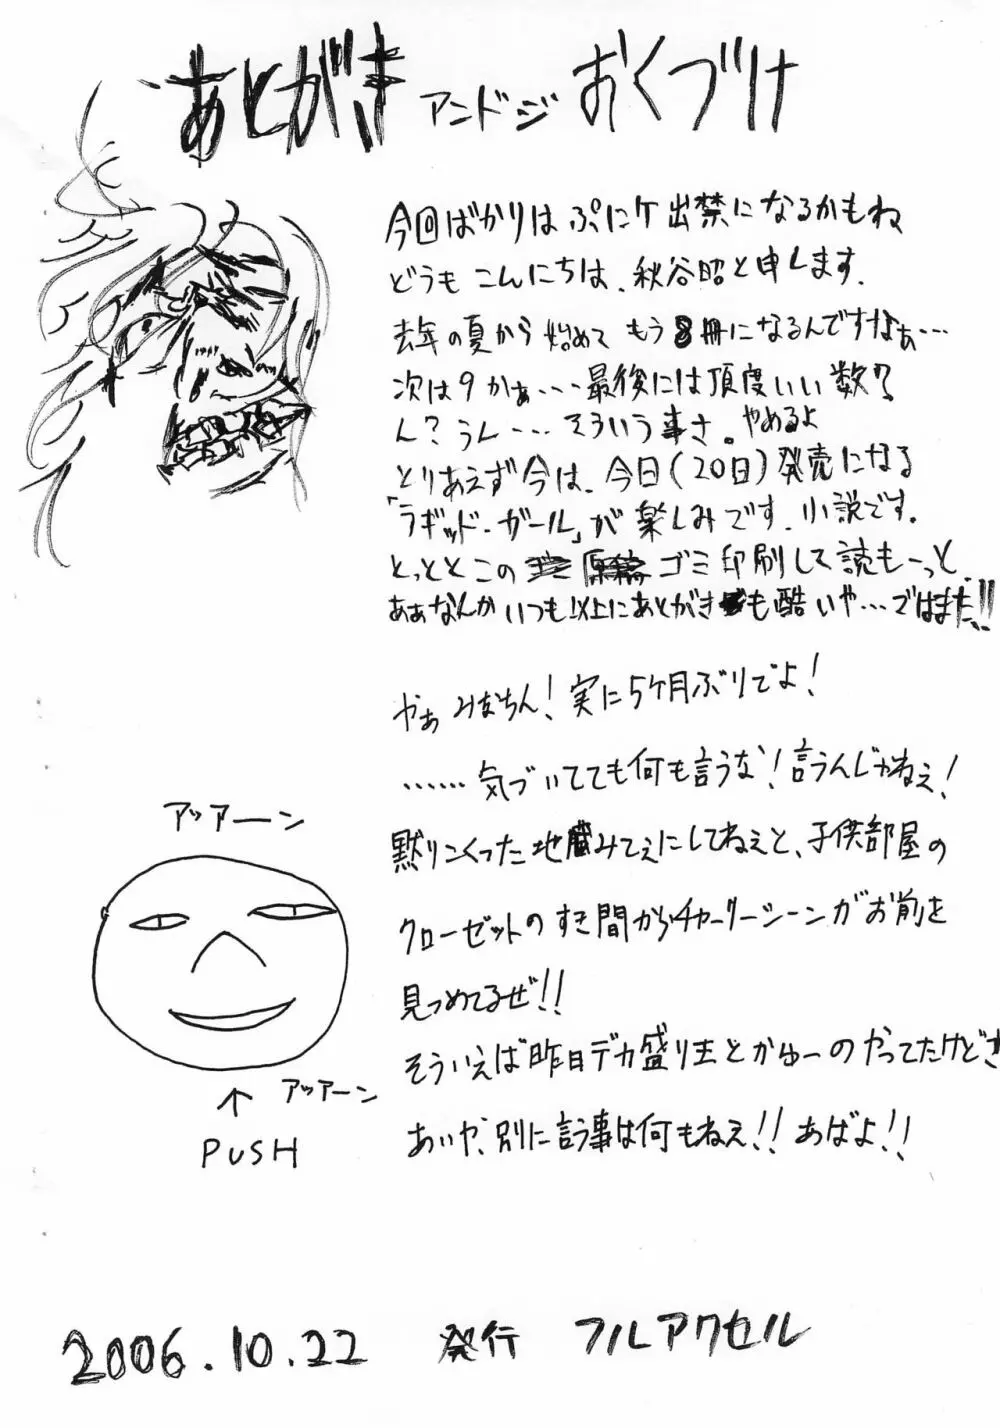 あとがき アンドジ おくづけ
今回ばかりは ぷにケ出禁になるかもね
どうも こんにちは、秋谷昭と申します。
去年の夏から 始めて もう8冊になるんですなぁ…
次は9かぁ… 最後には頂度いい数?
ん? うん… そういう事さ。やめるよ
とりあえず今は、今日(20日)発売になる
「ラギッド・ガール」が楽しみです、小説です。
とっととこの ゴミ印刷して読も〜っと
あぁなんか いつも以上にあとがきも酷いや…ではまた!!
やぁ みなちん! 実に5ケ月ぶりでよ!
……気づいてても何も言うな! 言うんじゃねぇ!
黙りこくった地蔵みてぇにしてねぇと、子供部屋の
クローゼットのすき間からチャーリーシーンがお前を
見つめてるぜ!!
そういえば昨日デカ盛り王とかゆーのやってたけどさ
あいや、別に言う事は何もねぇ!! あばよ!!
アッアーン
アッアーン
↑
PUSH
2006.10.22 発行 フルアクセル